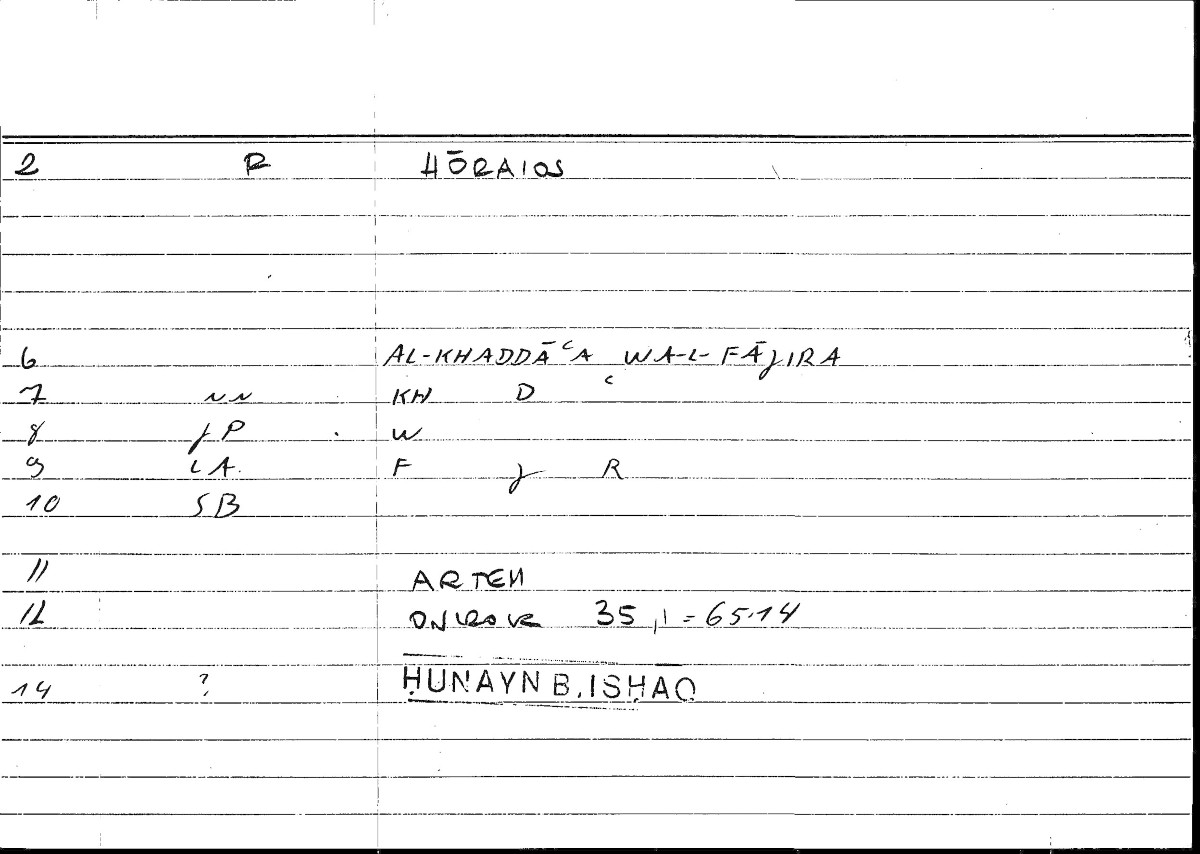 2 R HŌRAIOS
6 AL-KHADDĀʿA WA-L-FĀJIRA
7 NN KH D ʿ
8 JP W
9 LA. F J R
10 SB
11 ARTEM
12 ONIROKR 35,1 = 65.14
14 ? ḤUNAYN B. ISḤAQ